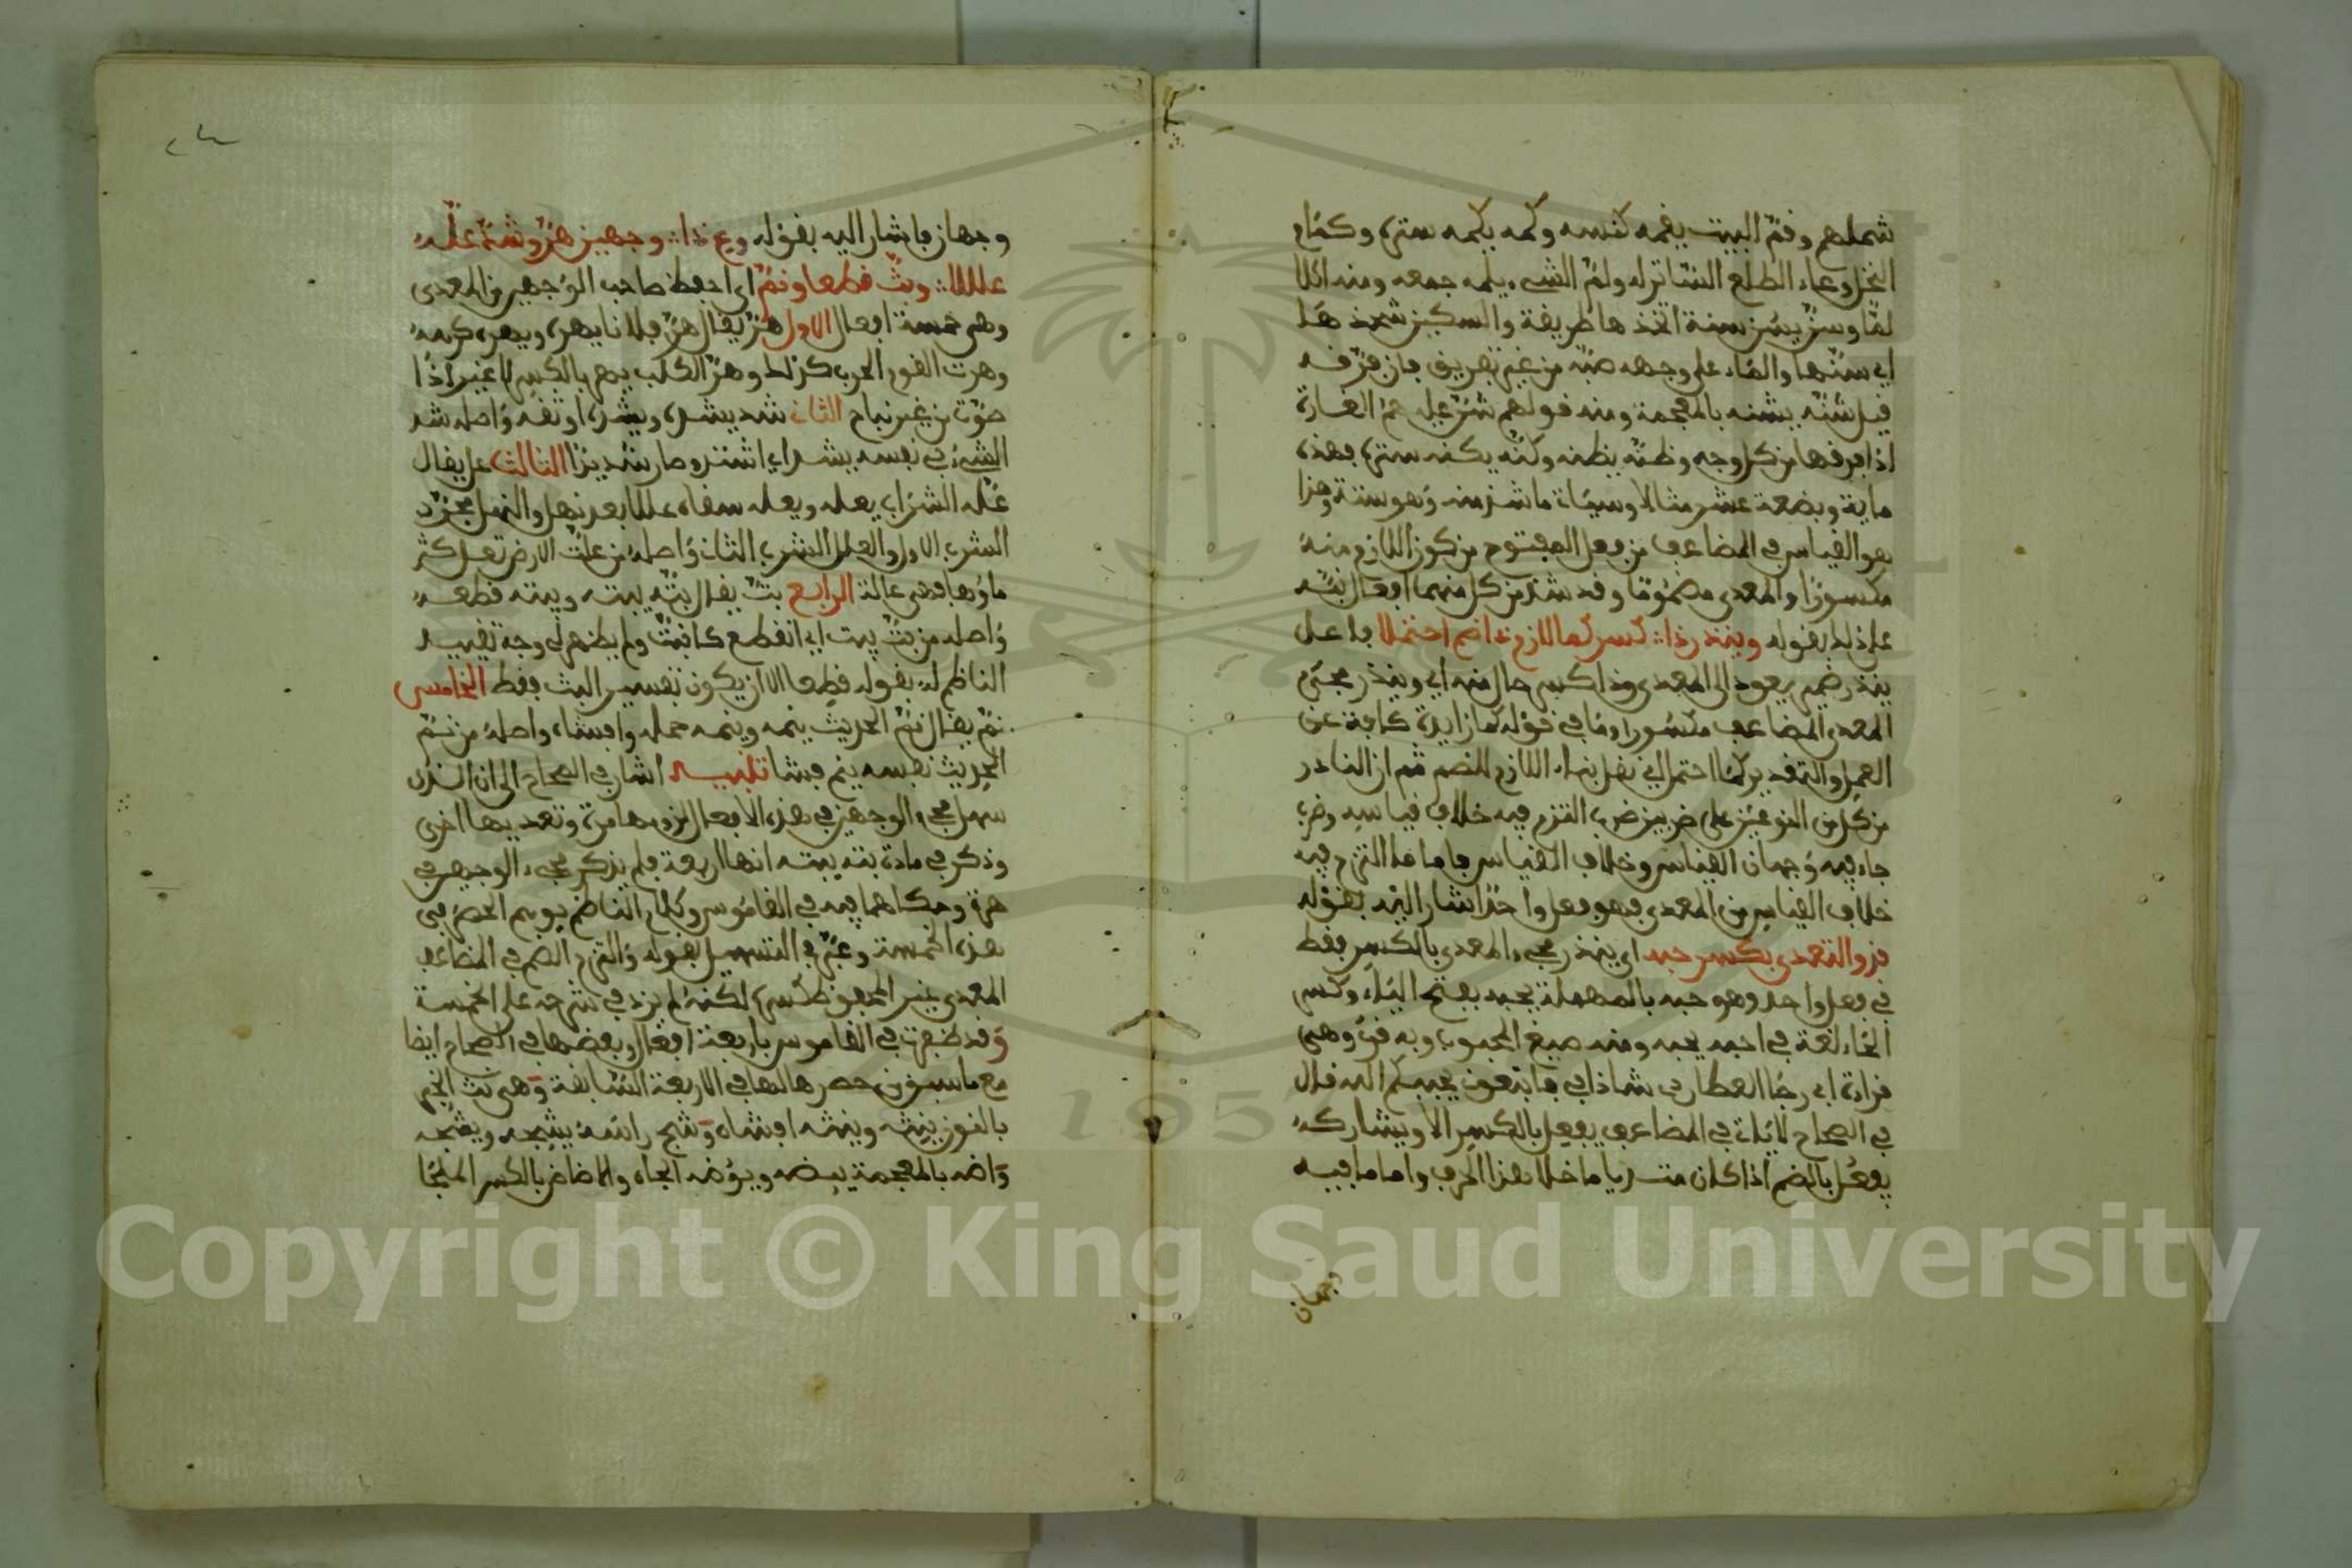 شملهم وقم البيت يقمه كنسه وكمه يكمه ستره وكمام
النخل وعاء الطلع الساتر له ولم الشيء يلمه جمعه ومنه اكلا
لما وسن يسن سنة اتخذها طريقة والسكين شحذ هنا
اي سنها والماء على وجهه صبه من غير تفريق فان فرقه
قيل شنه يشنه بالمعجمة ومنه قولهم شن عليهم الغارة
اذا فرقها من كل وجه وظنه يظنه وكنه يكنه ستره فهذه
ماية وبضعة عشر مثالا وسياة ما شذ منه وهو ستة وهذا
هو القياس في المضاعف من فعل المفتوح من كون اللازم منه
مكسورا والمعدى مضموما وقد شذ من كل منهما افعال نبه
على ذلك بقوله ويندر ذا كسر كما لازم ذا ضم احتملا فاعل
يندر ضمير يعود الى المعدى وذا كسر حال منه اي ويندر مجيء
المعدى المضاعف مكسورا وما في قوله كما زايدة كافة عن
العمل والتقدير كما احتمل اي نقل بناء اللازم للضم ثم ان النادر
من كل من النوعين على ضربين ضرب التزم فيه خلاف قياسه وضرب
جاء فيه وجهان القياس وخلاف القياس فاما ما التزم فيه
خلاف القياس من المعدى فهو فعل واحد اشار اليه بقوله
فذو التعدي بكسر حبه اي يندر مجيء المعدى بالكسر فقط
في فعل واحد وهو حبه بالمهملة يحبه بفتح الياء وكسر
الحاء لغة في احبه يحبه ومنه صيغ المحبوب وبه قرئ وهي
قراءة ابي رجا العطاردي شاذا في فاتبعوني يحببكم الله قال
في الصحاح لا ياتي في المضاعف يفعل بالكسر الا ويشاركه
يفعل بالضم اذا كان متعديا ما خلا هذا الحرف واما ما فيه
وجهان
وجهان فاشار اليه بقوله وع ذا وجهين هر وشد عله
عللا وبت قطعا ونم اي احفظ صاحب الوجهين من المعدى
وهي خمسة افعال الاول هر يقال هر فلانا يهره ويهره كرهه
وهرت القوم الحرب كذلك وهر الكلب يهر بالكسر لا غير اذا
صوت من غير نباح الثاني شد يشده ويشده اوثقه واصله شد
الشيء في نفسه يشد اي اشتد وصار شديدا الثالث عل يقال
عله الشراب يعله ويعله سقاه عللا بعد نهل والنهل مجرد
الشرب الاول والعلل الشرب الثاني واصله من علت الارض تعل كثر
ماؤها فهي عالة الرابع بت يقال بته يبته ويبته قطعه
واصله من بت يبت اي انقطع كانبت ولم يظهر لي وجه تقييد
الناظم له بقوله قطعا الا ان يكون تفسير البت فقط الخامس
نم يقال نم الحديث ينمه وينمه حمله وافشاه واصله من نم
الحديث نفسه ينم فشا تنبيه اشار في الصحاح الى ان الذي
سهل مجيء الوجهين في هذه الافعال لزومها مرة وتعديها اخرى
وذكر في مادة بته يبته انها اربعة فلم يذكر مجيء الوجهين في
هره وحكاهما فيه في القاموس وكلام الناظم يوهم الحصر في
هذه الخمسة وعبر في التسهيل بقوله والتزم الضم في المضاعف
المعدى غير المحفوظ كسره لكنه لم يزد في شرحه على الخمسة
وقد ظفرت في القاموس باربعة افعال وبعضها في الصحاح ايضا
مع ما سبق من حصرها لها في الاربعة السابقة وهي نث الخبر
بالنون ينثه وينثه افشاه وشج راسه يشجه ويشجه
واضه بالمعجمة يئضه ويؤضه الجاه والاضاض بالكسر الملجا
Copyright © King Saud University
1957